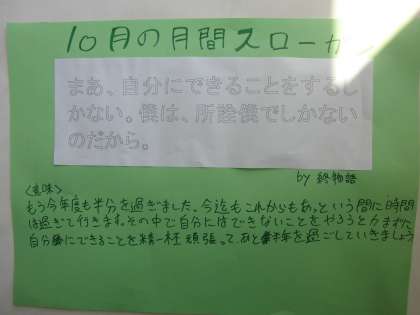 10月の月間スローガン
まあ、自分にできることをするし
かない。僕は、所詮僕でしかない
のだから。
by 終物語
<意味>
もう今年度も半分を過ぎました。今迄もこれからもあっという間に時間
は過ぎて行きます。その中で自分にはできないことをやろうと力まずに
自分にできることを精一杯頑張って、あと半年を過ごしていきましょう